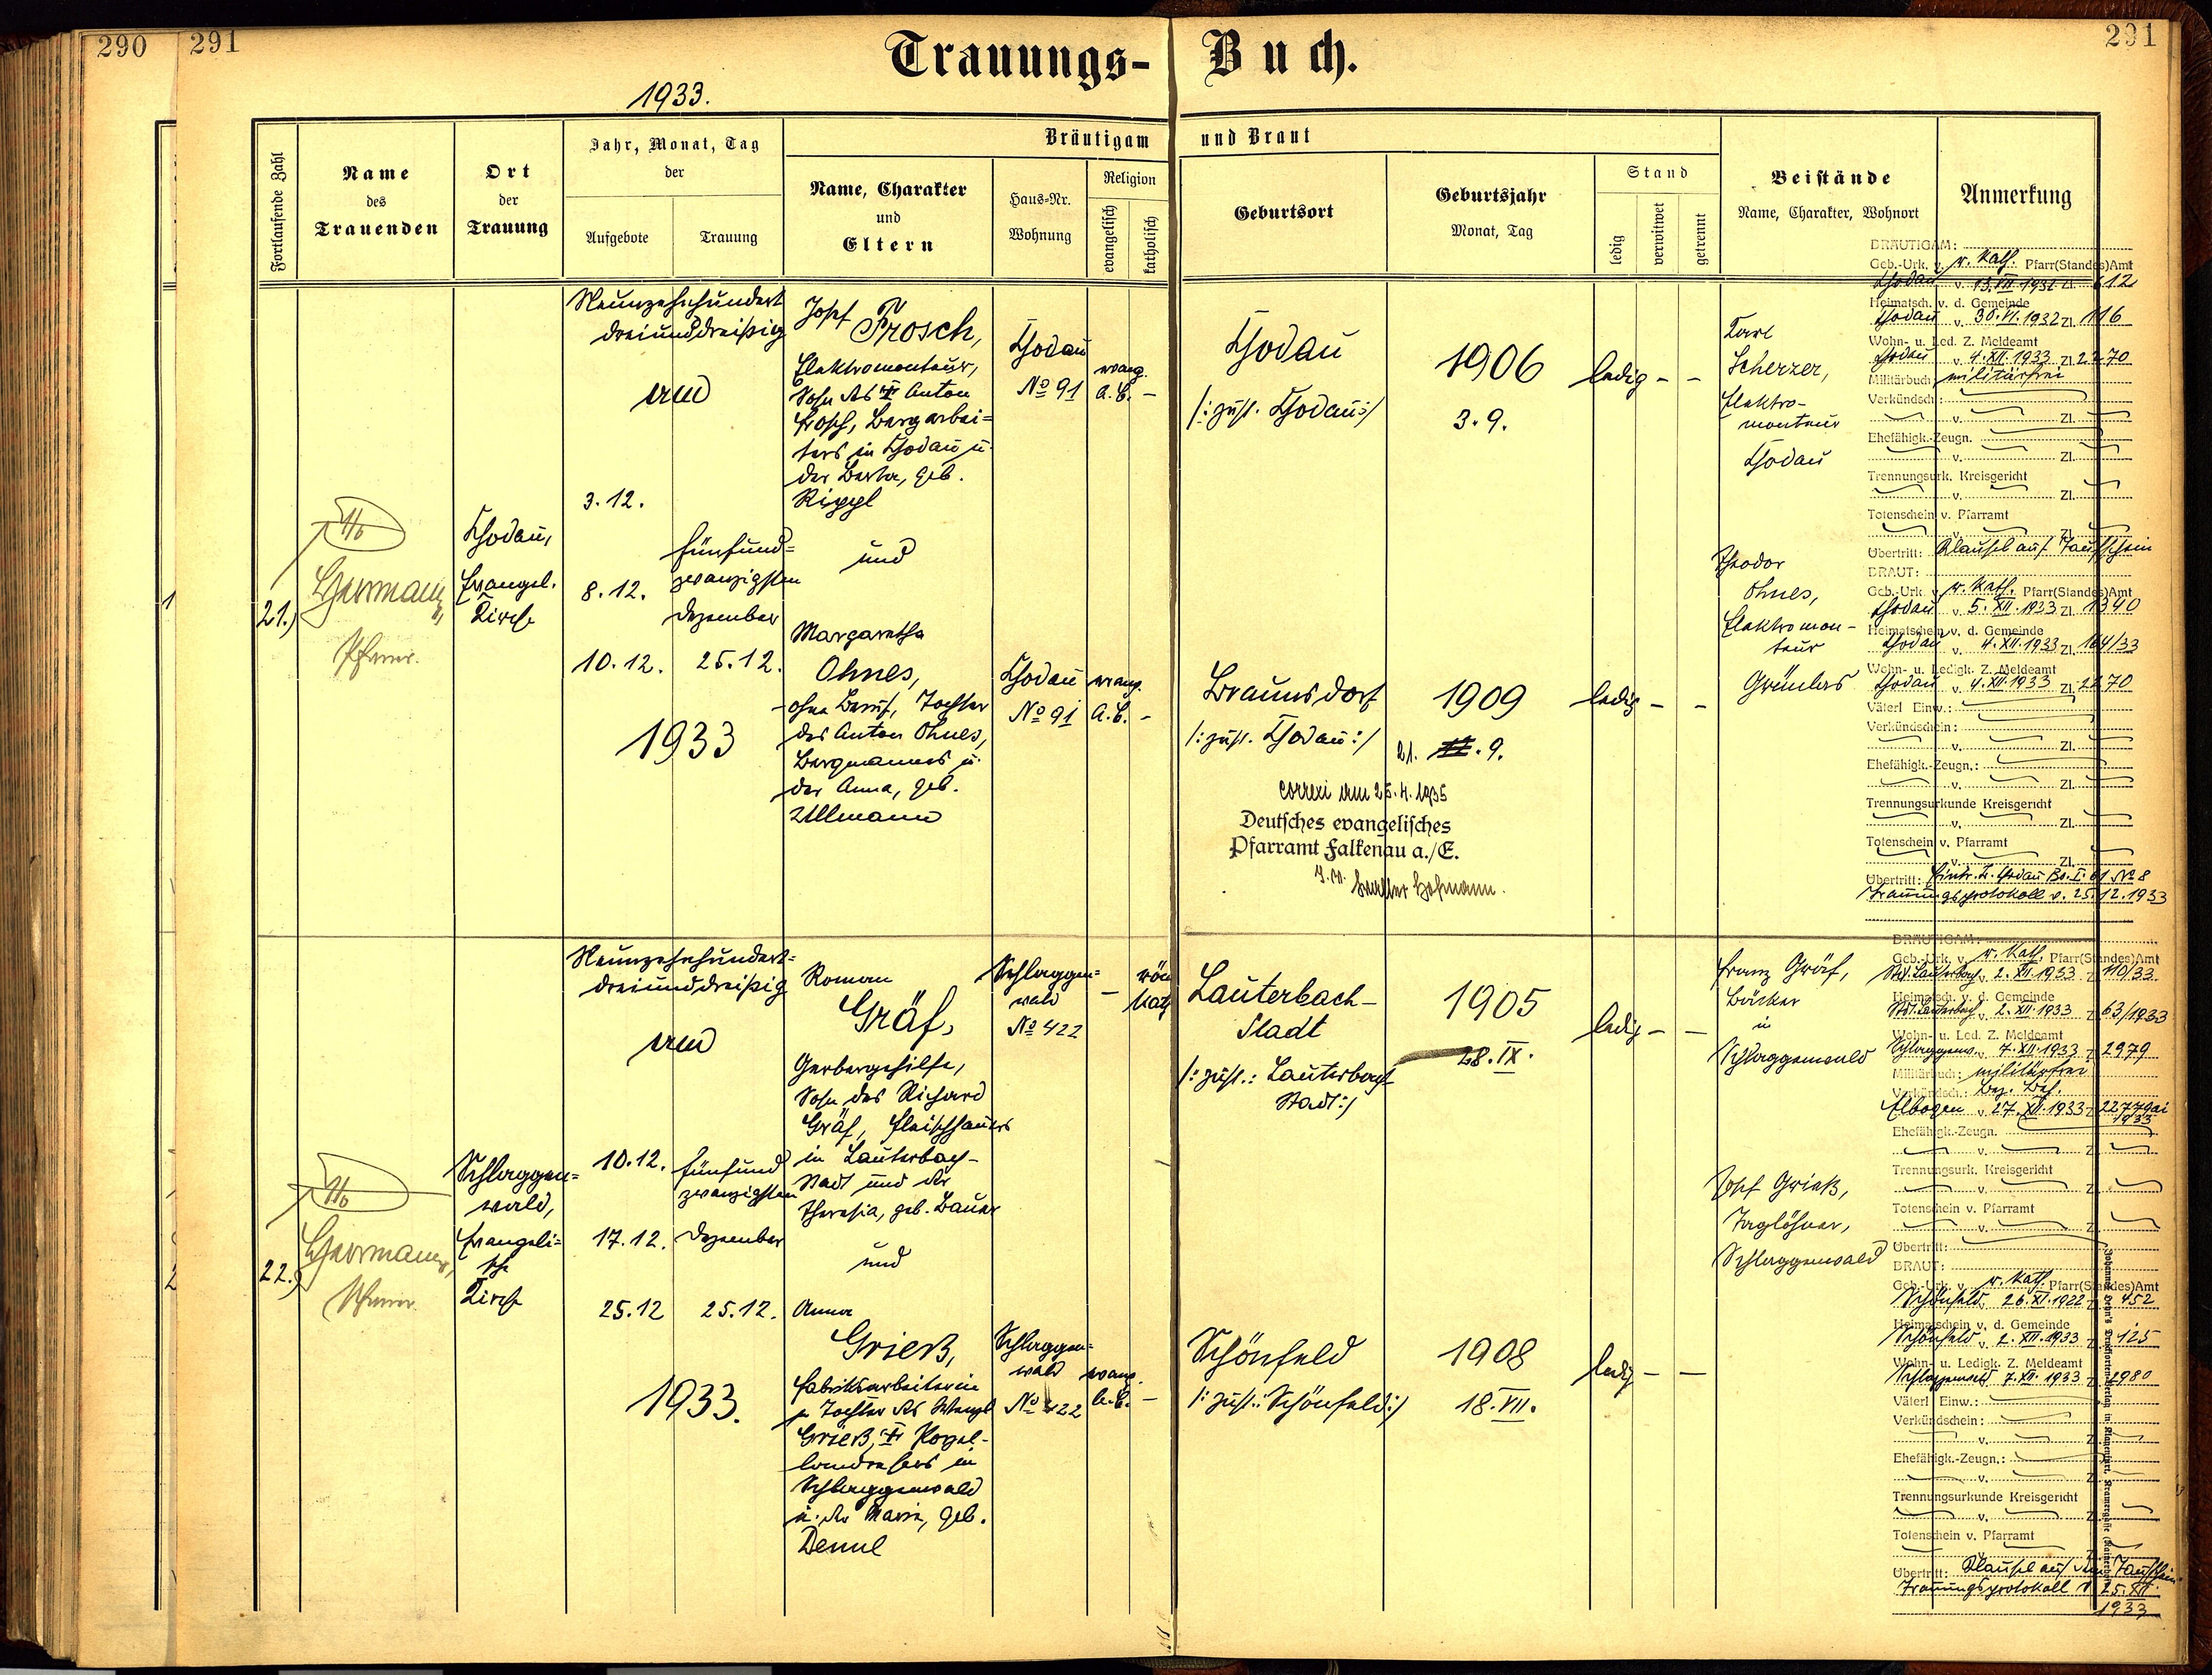 290
291
Trauungs-Buch.
291
1933.
Fortlaufende Zahl
Name
des
Trauenden
Ort
der
Trauung
Jahr, Monat, Tag
der
Aufgebote
Trauung
Bräutigam und Braut
Name, Charakter
und
Eltern
Haus-Nr.
Wohnung
Religion
evangelisch
katholisch
Geburtsort
Geburtsjahr
Monat, Tag
Stand
ledig
verwitwet
getrennt
Beistände
Name, Charakter, Wohnort
Anmerkung
21.)
Pfarrer.
Chodau,
Evangel.
Kirche
Neunzehnhundert
dreiunddreißig
und
3.12.
8.12.
10.12.
fünfund=
zwanzigsten
Dezember
25.12.
1933
Josef
Prosch,
Elektromonteur,
Sohn des Anton
Prosch, Bergarbei=
ters in Chodau u.
der Berta, geb.
Rippl
und
Margaretha
Ohnes,
ohne Beruf, Tochter
des Anton Ohnes,
Bergmannes u.
der Anna, geb.
Ullmann
Chodau
No 91
evang.
A.B. -
Chodau
No 91
evang.
A.B. -
Chodau
/: zust. Chodau :/
1906
3.9.
ledig - -
Braunsdorf
/: zust. Chodau :/
1909
21. 9.
ledig - -
correxi am 25.4.1935
Deutsches evangelisches
Pfarramt Falkenau a./E.
Walter Hofmann.
Karl
Scherzer,
Elektro-
monteur
Chodau
Theodor
Ohnes,
Elektromon-
teur
Grünlas
BRÄUTIGAM:
Geb.-Urk. v. r. kath. Pfarr(Standes)Amt
Chodau v. 13.VII.1932 Zl. 612
Heimatsch. v. d. Gemeinde
Chodau v. 30.VI.1932 Zl. 116
Wohn- u. Led. Z. Meldeamt
Chodau v. 4.XII.1933 Zl. 2270
Militärbuch: militärfrei
Verkündsch.:
v. Zl.
Ehefähigk.-Zeugn.
v. Zl.
Trennungsurk. Kreisgericht
v. Zl.
Totenschein v. Pfarramt
v. Zl.
Übertritt: Klausel auf Taufschein
BRAUT:
Geb.-Urk. v. r. kath. Pfarr(Standes)Amt
Chodau v. 5.XII.1933 Zl. 1340
Heimatschein v. d. Gemeinde
Chodau v. 4.XII.1933 Zl. 164/33
Wohn- u. Ledigk. Z. Meldeamt
Chodau v. 4.XII.1933 Zl. 2270
Väterl Einw.:
Verkündschein:
v. Zl.
Ehefähigk.-Zeugn.:
v. Zl.
Trennungsurkunde Kreisgericht
v. Zl.
Totenschein v. Pfarramt
v. Zl.
Übertritt: Eintr. B. Chodau Bd. I. 61 No 8
Trauungsprotokoll v. 25.12.1933
22.)
Pfarrer
Schlaggen=
wald,
Evangeli=
sche
Kirche
Neunzehnhundert=
dreiunddreißig
und
10.12.
17.12.
25.12
fünfund
zwanzigsten
Dezember
25.12.
1933.
Roman
Gräf,
Gerbergehilfe,
Sohn des Richard
Gräf, Fleischhauers
in Lauterbach-
Stadt und der
Theresia, geb. Bauer
und
Anna
Grieß,
Fabriksarbeiterin
Tochter des Wenzl
Grieß, Porzel-
landrehers in
Schlaggenwald
u. der Marie, geb.
Deml
Schlaggen=
wald
No 422
- röm
kath
Schlaggen=
wald
No 422
evang.
A.B. -
Lauterbach-
Stadt
/: zust.: Lauterbach
Stadt :/
1905
28.IX.
ledig - -
Schönfeld
/: zust.: Schönfeld :/
1908
18.VII.
ledig - -
Franz Gräf,
Bäcker
in
Schlaggenwald
Josef Grieß,
Taglöhner,
Schlaggenwald
BRÄUTIGAM:
Geb.-Urk. v. r. kath. Pfarr(Standes)Amt
St. Lauterbach v. 2.XII.1933 Z. 110/33
Heimatsch. v. d. Gemeinde
St. Lauterbach v. 2.XII.1933 Z. 63/1933
Wohn- u. Led. Z. Meldeamt
Schlaggenw. 7.XII.1933 Z. 2979
Militärbuch: militärfrei
Verkündsch.: Bez. Beh.
Elbogen v. 27.XII.1933 Z. 22779ai
1933
Ehefähigk.-Zeugn.
v. Z.
Trennungsurk. Kreisgericht
v. Z.
Totenschein v. Pfarramt
v. Z.
Übertritt:
BRAUT:
Geb.-Urk. v. r. kath. Pfarr(Standes)Amt
Schönfeld v. 26.XI.1922 Z. 452
Heimatschein v. d. Gemeinde
Schönfeld v. 2.XII.1933 Z. 125
Wohn- u. Ledigk. Z. Meldeamt
Schlaggenwald 7.XII.1933 Z. 2980
Väterl Einw.:
Verkündschein:
v. Z.
Ehefähigk.-Zeugn.:
v. Z.
Trennungsurkunde Kreisgericht
v. Z.
Totenschein v. Pfarramt
Z.
Übertritt: Klausel auf dem Taufschein
Trauungsprotokoll v. 25.XII.
1933